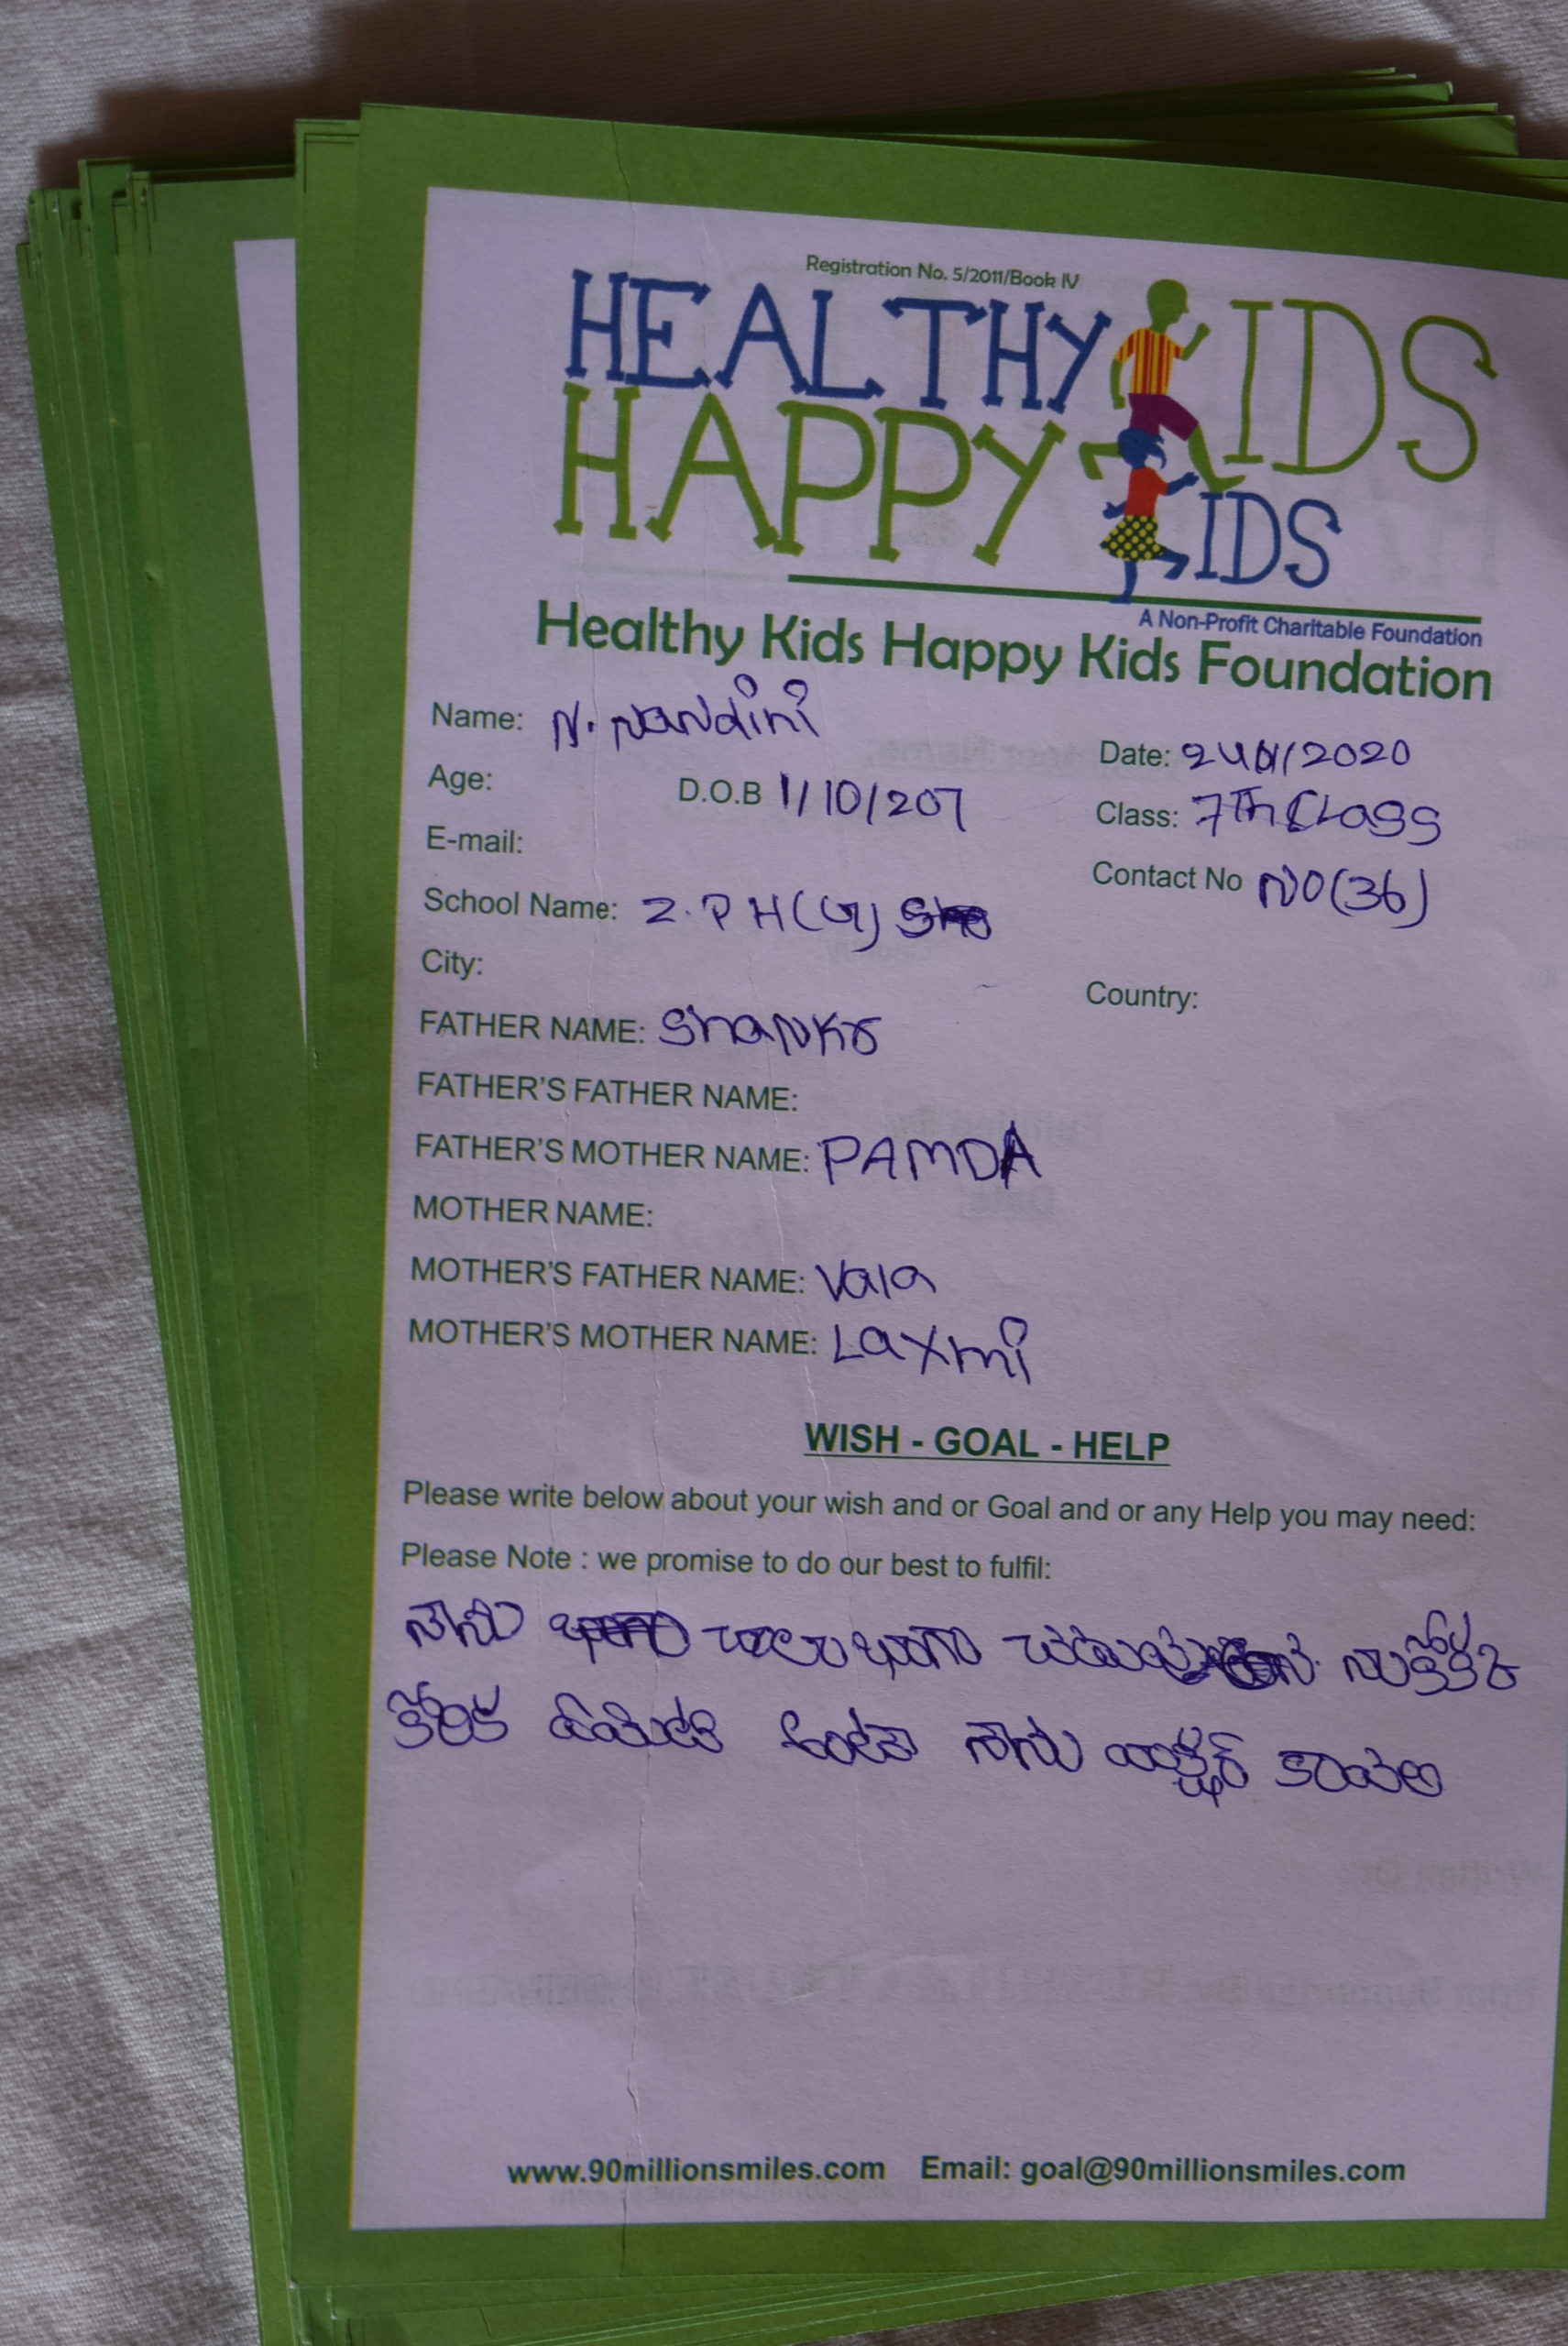 Registration No. 5/2011/Book IV
HEALTHY KIDS
HAPPY KIDS
A Non-Profit Charitable Foundation
Healthy Kids Happy Kids Foundation
Name: N. Nandini
Date: 24/01/2020
Age: D.O.B 1/10/207
Class: 7Th Class
E-mail:
Contact No NO(36)
School Name: Z.PH(G)
City:
Country:
FATHER NAME: Shankr
FATHER'S FATHER NAME:
FATHER'S MOTHER NAME: PAMDA
MOTHER NAME:
MOTHER'S FATHER NAME: Vala
MOTHER'S MOTHER NAME: Laxmi
WISH - GOAL - HELP
Please write below about your wish and or Goal and or any Help you may need:
Please Note : we promise to do our best to fulfil:
నాను చాలా బాగా
కోరిక ఏమిటి అంటా నాను కావలి
www.90millionsmiles.com Email: goal@90millionsmiles.com